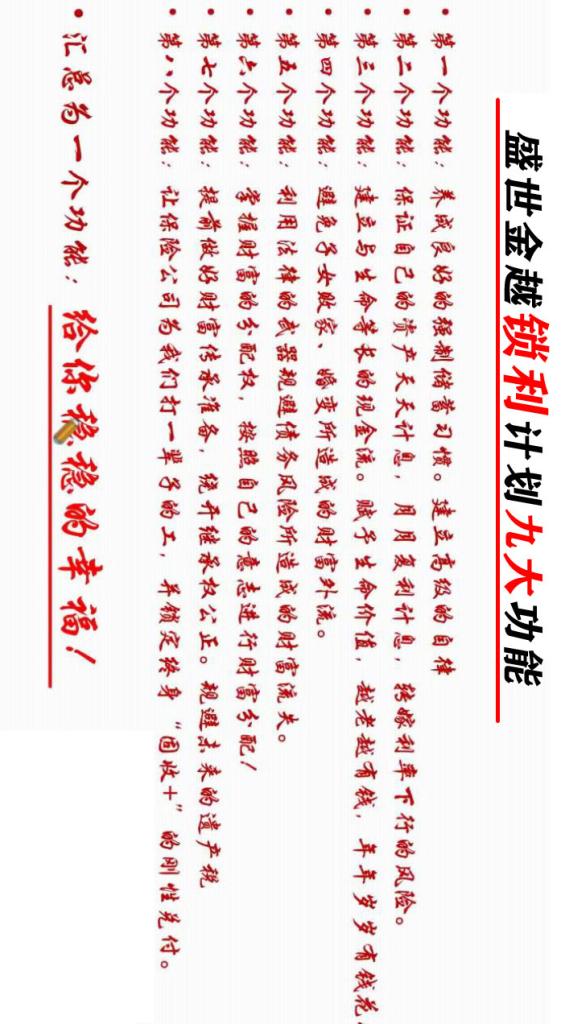 盛世金越锁利计划九大功能
• 第一个功能：养成良好的强制储蓄习惯。建立高级的自律
• 第二个功能：保证自己的资产天天计息，月月复利计息，转嫁利率下行的风险。
• 第三个功能：建立与生命等长的现金流。赋予生命价值，越老越有钱，年年岁岁有钱花
• 第四个功能：避免子女败家、婚变所造成的财富外流。
• 第五个功能：利用法律的武器规避债务风险所造成的财富流失。
• 第六个功能：掌握财富的分配权，按照自己的意志进行财富分配！
• 第七个功能：提前做好财富传承准备，绕开继承权公正。规避未来的遗产税
• 第八个功能：让保险公司为我们打一辈子的工，并锁定终身“固收+”的刚性兑付。
• 汇总为一个功能：给你稳稳的幸福！